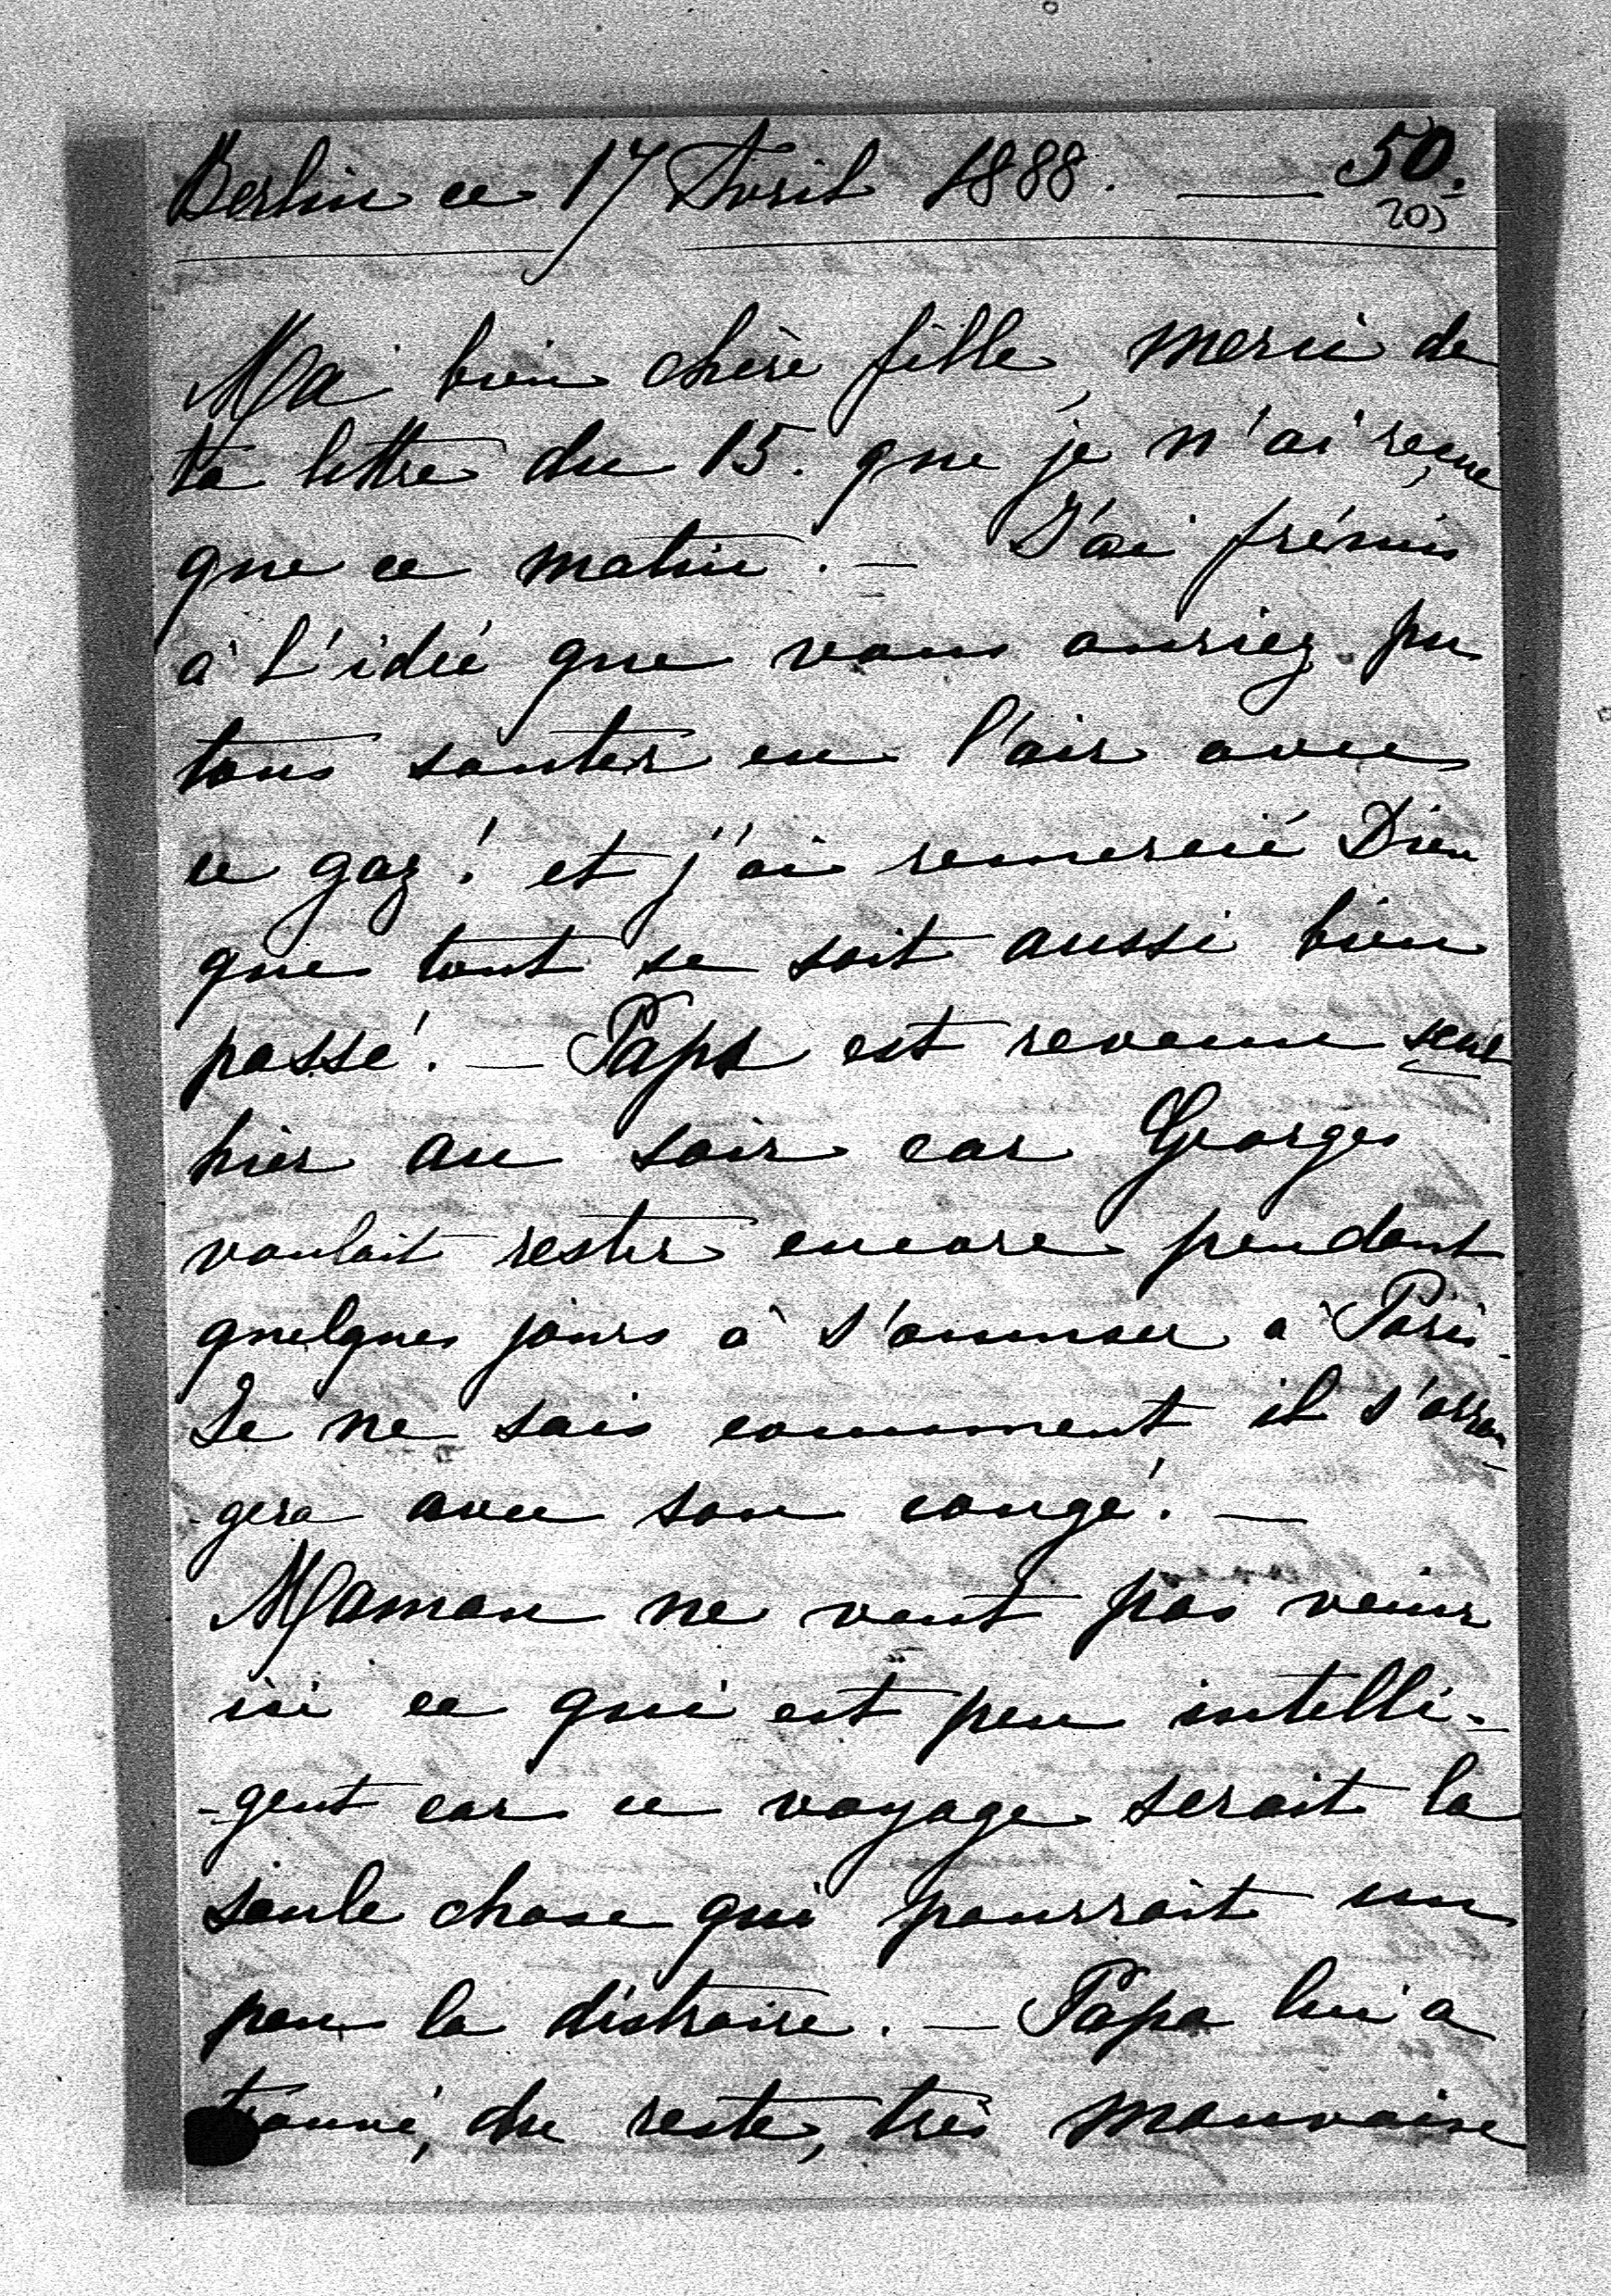 Berlin ce 17 Avril 1888. — 50.
205
Ma bien chère fille, merci de
ta lettre du 15. que je n'ai reçue
que ce matin. — J'ai frémis
à l'idée que vous auriez pu
tous sauter en l'air avec
ce gaz! et j'ai remercié Dieu
que tout se soit aussi bien
passé! — Papa est revenu seul
hier au soir car Georges
voulait rester encore pendant
quelques jours à s'amuser à Paris.
Je ne sais comment il s'arran-
-gera avec son congé! —
Maman ne veut pas venir
ici ce qui est peu intelli-
-gent car ce voyage serait la
seule chose qui pourrait un
peu la distraire. — Papa lui a
trouvé, du reste, très mauvaise